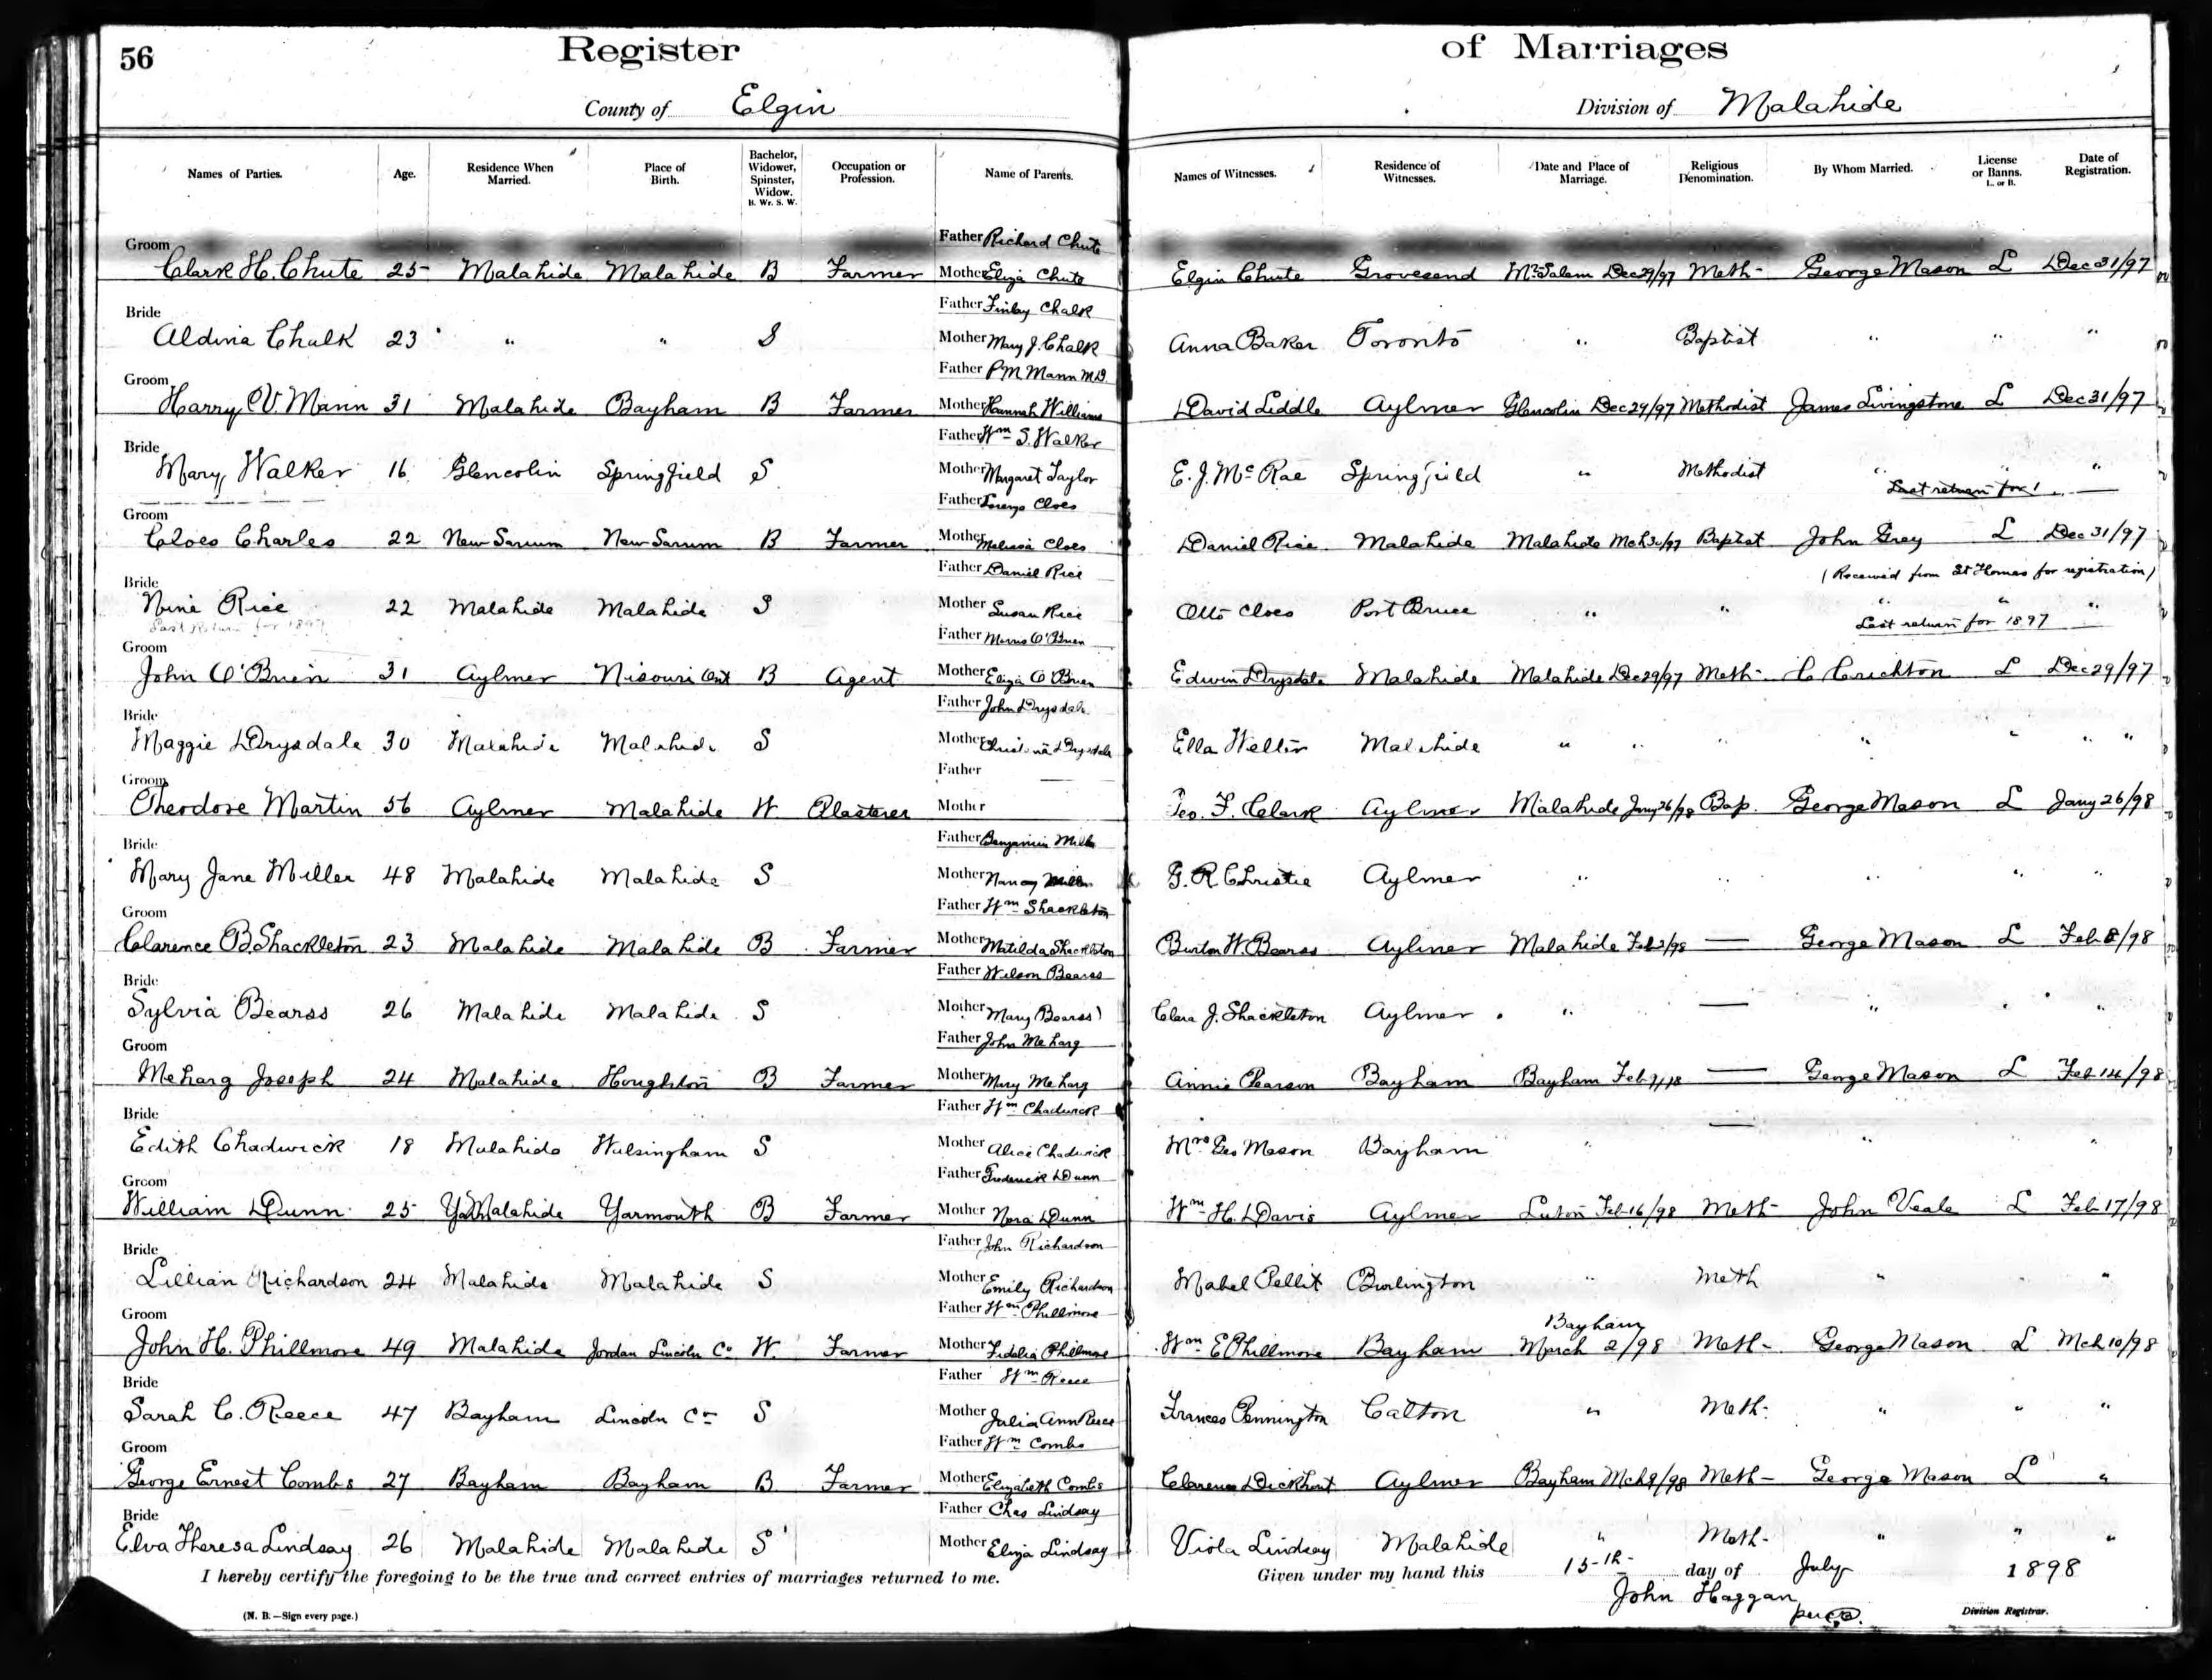 56
Register of Marriages
County of Elgin Division of Malahide
Names of Parties. Age. Residence When Married. Place of Birth. Bachelor, Widower, Spinster, Widow. B. Wr. S. W. Occupation or Profession. Name of Parents. Names of Witnesses. Residence of Witnesses. Date and Place of Marriage. Religious Denomination. By Whom Married. License or Banns. L. or B. Date of Registration.
Father Richard Chute
Groom
Clark H. Chute 25 Malahide Malahide B Farmer Mother Eliza Chute Elgin Chute Grovesend Mt Salem Dec 29/97 Meth- George Mason L Dec 31/97
Father Finlay Chalk
Bride
Aldina Chalk 23 " " S Mother Mary J. Chalk Anna Baker Toronto " Baptist " " "
Father P M Mann M D.
Groom
Harry V. Mann 31 Malahide Bayham B Farmer Mother Hannah Williams David Liddle Aylmer Glencolin Dec 29/97 Methodist James Livingstone L Dec 31/97
Father Wm S. Walker
Bride
Mary Walker 16 Glencolin Springfield S Mother Margaret Taylor E. J. McRae Springfield " Methodist " " "
Last return for
Father Lorenzo Cloes
Groom
Cloes Charles 22 New Sarum New Sarum B Farmer Mother Melissa Cloes Daniel Rice Malahide Malahide Mch 31/97 Baptist John Gray L Dec 31/97
Father Daniel Rice (Received from St Thomas for registration)
Bride
Nina Rice 22 Malahide Malahide S Mother Susan Rice Otto Cloes Port Bruce " " " " "
Last Return for 1897 Last return for 1897
Father Morris O'Brien
Groom
John O'Brien 31 Aylmer Nisouri Ont B Agent Mother Eliza O'Brien Edwin Drysdale Malahide Malahide Dec 29/97 Meth- C Crichton L Dec 29/97
Father John Drysdale
Bride
Maggie Drysdale 30 Malahide Malahide S Mother Christina Drysdale Ella Welter Malahide " " " " " " "
Father —
Groom
Theodore Martin 56 Aylmer Malahide W Plasterer Mother Geo. F. Clark Aylmer Malahide Jany 26/98 Bap. George Mason L Jany 26/98
Father Benjamin Miller
Bride
Mary Jane Miller 48 Malahide Malahide S Mother Nancy Miller G. R Christie Aylmer " " " " "
Father Wm Shackleton
Groom
Clarence B. Shackleton 23 Malahide Malahide B Farmer Mother Matilda Shackleton Burton W. Bearss Aylmer Malahide Feb 2/98 — George Mason L Feb 8/98
Father Wilson Bearss
Bride
Sylvia Bearss 26 Malahide Malahide S Mother Mary Bearss Clara J. Shackleton Aylmer " — " " "
Father John Meharg
Groom
Meharg Joseph 24 Malahide Houghton B Farmer Mother Mary Meharg Annie Pearson Bayham Bayham Feb 9/98 — George Mason L Feb 14/98
Father Wm Chadwick
Bride
Edith Chadwick 18 Malahide Walsingham S Mother Alice Chadwick Mrs Geo Mason Bayham " — " "
Father Frederick Dunn
Groom
William Dunn 25 Malahide Yarmouth B Farmer Mother Nora Dunn Wm H. Davis Aylmer Luton Feb 16/98 Meth- John Veale L Feb 17/98
Father John Richardson
Bride
Lillian Richardson 24 Malahide Malahide S Mother Emily Richardson Mabel Pellit Burlington " Meth " " "
Father Wm Phillmore
Groom Bayham
John H. Phillmore 49 Malahide Jordan Lincoln Co W. Farmer Mother Fidelia Phillmore Wm E Phillmore Bayham March 2/98 Meth- George Mason L Mch 10/98
Father Wm Reece
Bride
Sarah C. Reece 47 Bayham Lincoln Co S Mother Julia Ann Reece Frances Pennington Calton " Meth- " " "
Father Wm Combs
Groom
George Ernest Combs 27 Bayham Bayham B Farmer Mother Elizabeth Combs Clarence Dickhout Aylmer Bayham Mch 9/98 Meth- George Mason L "
Father Chas Lindsay
Bride
Elva Theresa Lindsay 26 Malahide Malahide S Mother Eliza Lindsay Viola Lindsay Malahide " Meth- " " "
I hereby certify the foregoing to be the true and correct entries of marriages returned to me. Given under my hand this 15th day of July 1898
John Haggan
(N. B.—Sign every page.) Division Registrar.